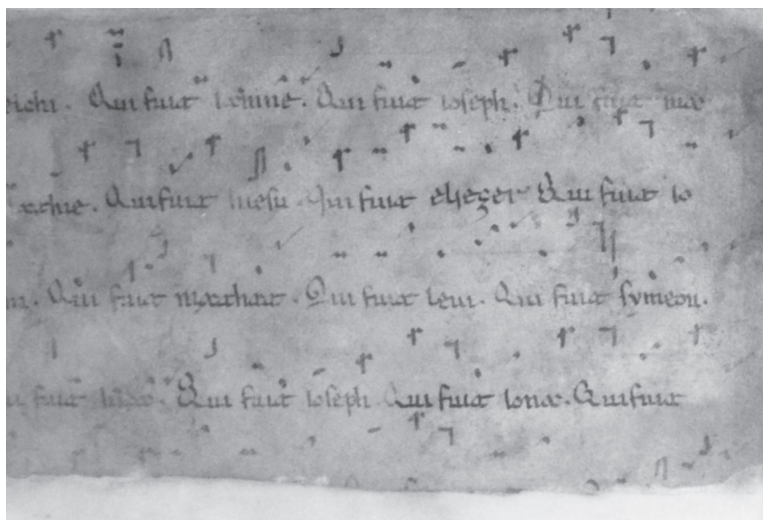 Qui fuit Qui fuit ioseph. Qui fuit
Qui fuit hiesu Qui fuit eliezer Qui fuit io
Qui fuit matthat. Qui fuit leui. Qui fuit symeon.
fuit iuda. Qui fuit ioseph. Qui fuit iona. Qui fuit